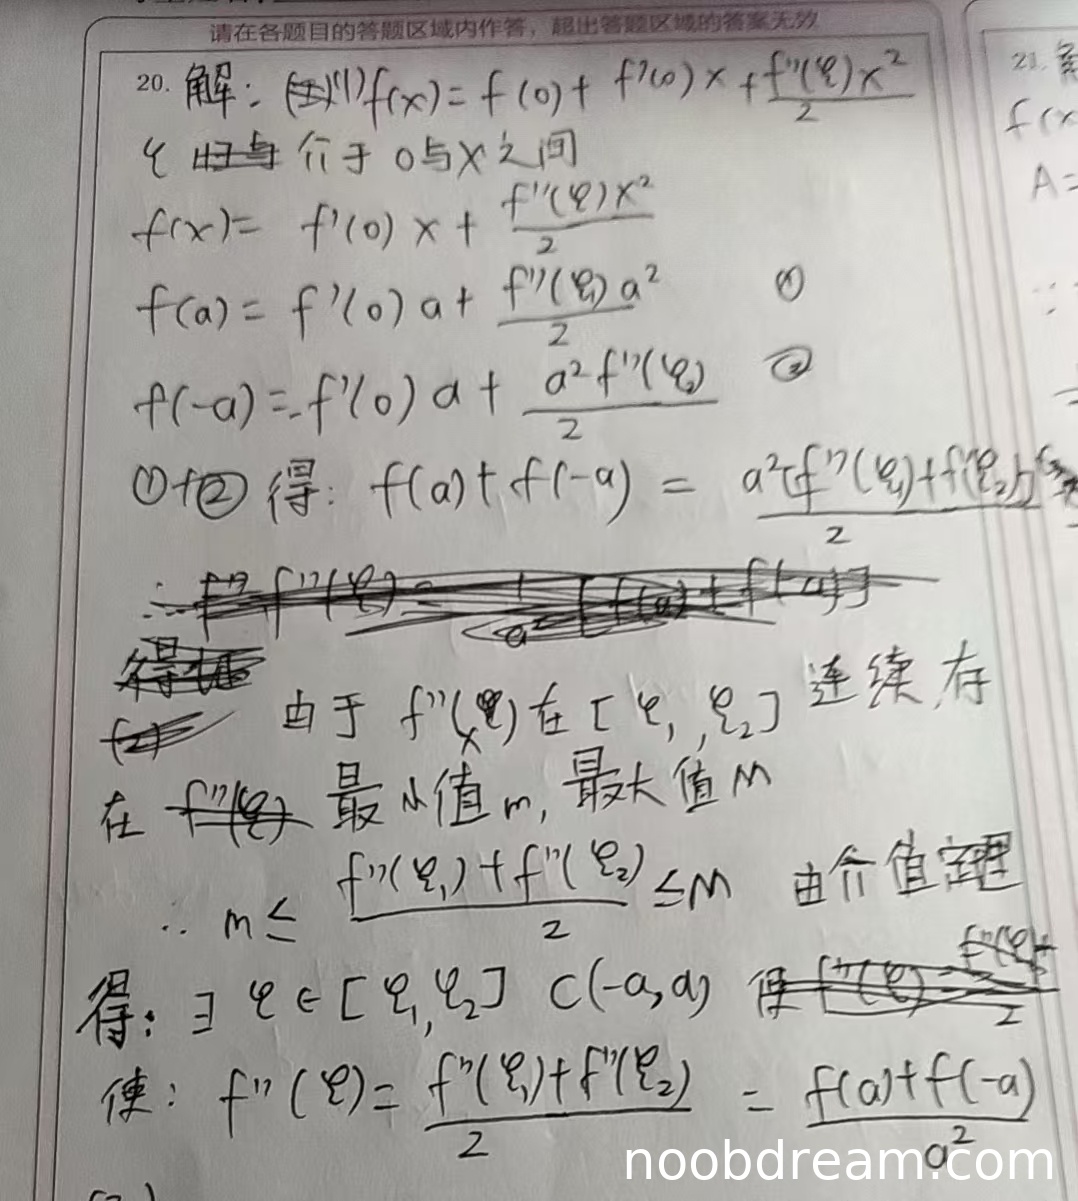 请在各题目的答题区域内作答，超出答题区域的答案无效
20. 解: (1) f(x) = f(0) + f'(0)x + f''(ξ)x²/2
ξ 介于 0与X之间
f(x) = f'(0)x + f''(ξ)x²/2
f(a) = f'(0)a + f''(ξ₁)a²/2 ①
f(-a) = -f'(0)a + a²f''(ξ₂)/2 ②
①+② 得: f(a) + f(-a) = a²[f''(ξ₁)+f''(ξ₂)]/2
由于 f''(x) 在 [ξ₁, ξ₂] 连续, 存
在 最小值 m, 最大值 M
∴ m ≤ (f''(ξ₁)+f''(ξ₂))/2 ≤ M 由介值定理
得: ∃ ξ ∈ [ξ₁, ξ₂] ⊂ (-a, a) 使
使: f''(ξ) = (f''(ξ₁)+f''(ξ₂))/2 = (f(a)+f(-a))/a²
21. 解
f(x
A =
noobdream.com